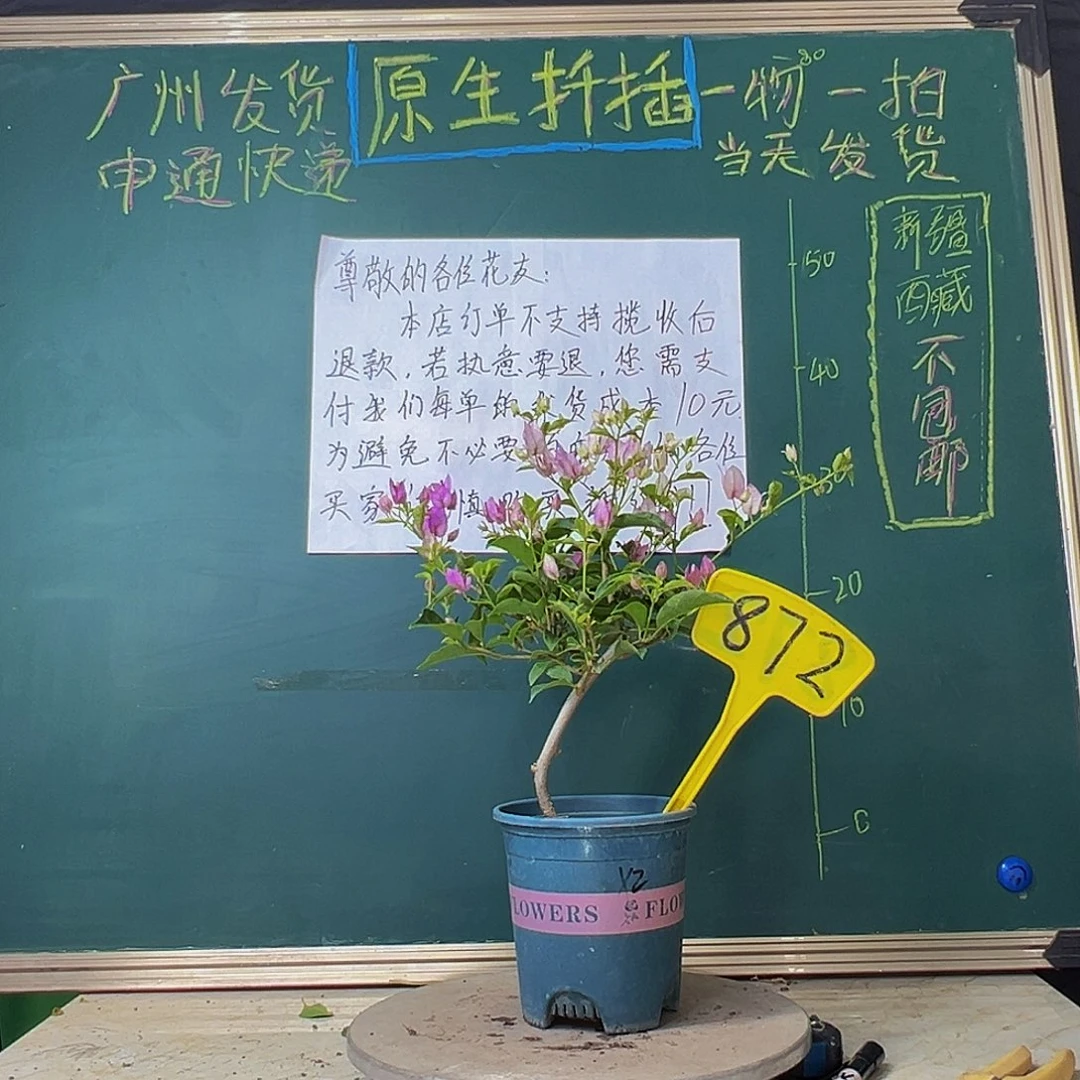 广州发货 原生扦插 一物一拍
申通快递 当天发货
尊敬的各位花友:
本店订单不支持揽收后
退款,若执意要退,您需支
付我们每单的发货成本10元
为避免不必要 各位
买家 慎
50
40
30
20
10
0
新疆
西藏
不
包
邮
872
LOWERS FLOW